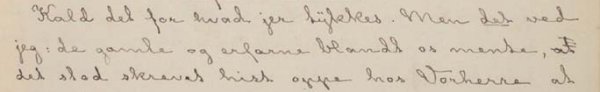 Kald det for hvad jer tykkes. Men det ved
jeg: de gamle og erfarne blandt os mente, at
det stod skrevet hist oppe hos Vorherre at